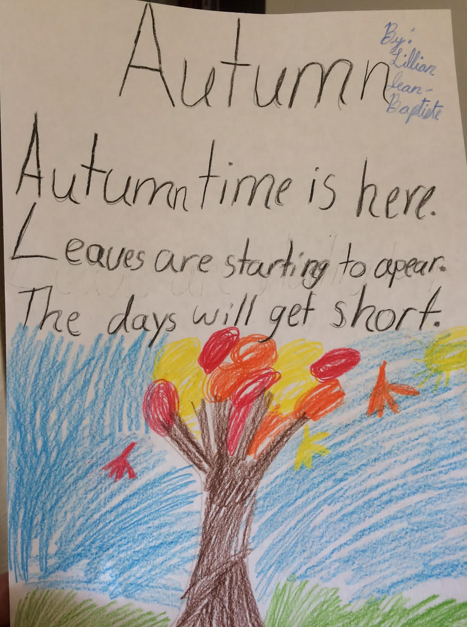 Autumn
By:
Lillian
Jean-
Baptiste
Autumn time is here.
Leaves are starting to apear.
The days will get short.